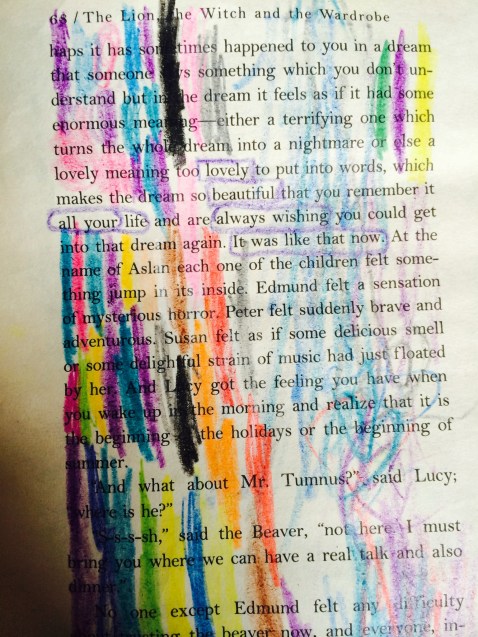 68 / The Lion, the Witch and the Wardrobe
haps it has sometimes happened to you in a dream
that someone says something which you don't un-
derstand but in the dream it feels as if it had some
enormous meaning—either a terrifying one which
turns the whole dream into a nightmare or else a
lovely meaning too lovely to put into words, which
makes the dream so beautiful that you remember it
all your life and are always wishing you could get
into that dream again. It was like that now. At the
name of Aslan each one of the children felt some-
thing jump in its inside. Edmund felt a sensation
of mysterious horror. Peter felt suddenly brave and
adventurous. Susan felt as if some delicious smell
or some delightful strain of music had just floated
by her. And Lucy got the feeling you have when
you wake up in the morning and realize that it is
the beginning of the holidays or the beginning of
summer.
"And what about Mr. Tumnus?" said Lucy;
"where is he?"
"S-s-s-sh," said the Beaver, "not here. I must
bring you where we can have a real talk and also
dinner."
No one except Edmund felt any difficulty
the beaver now, and everyone, in-